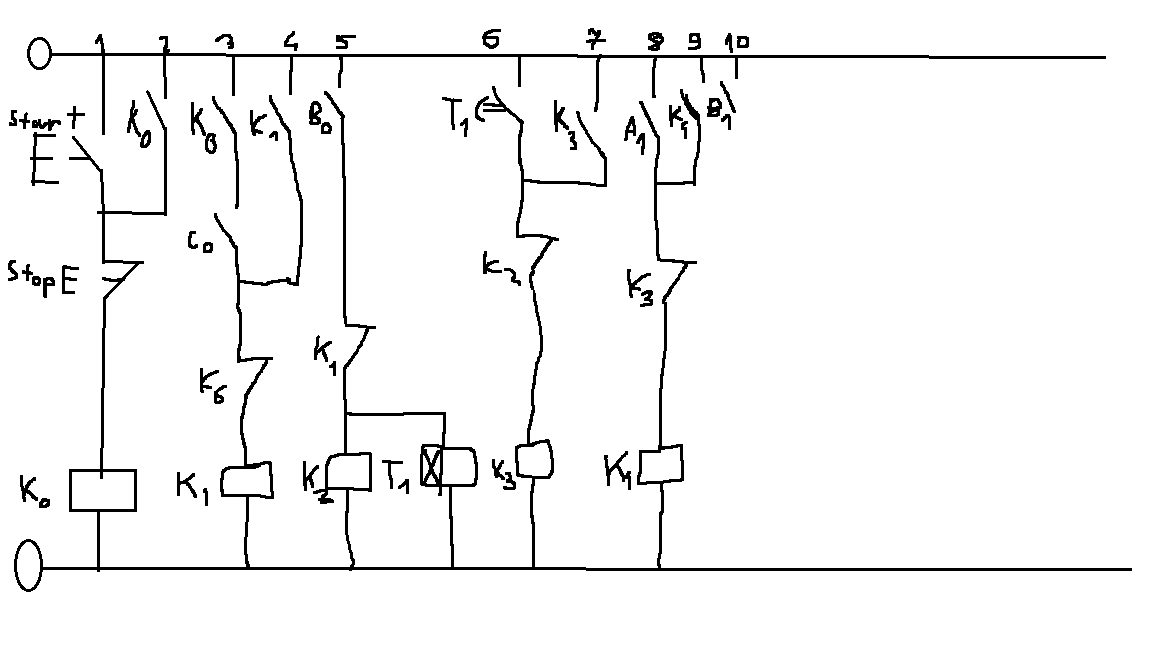 1 2 3 4 5 6 7 8 9 10
Start K0 K0 K1 B0 T1 K3 A1 K4 B1
E
C0
Stop E K2 K3
K1
K6
K0 K1 K2 T1 K3 K4